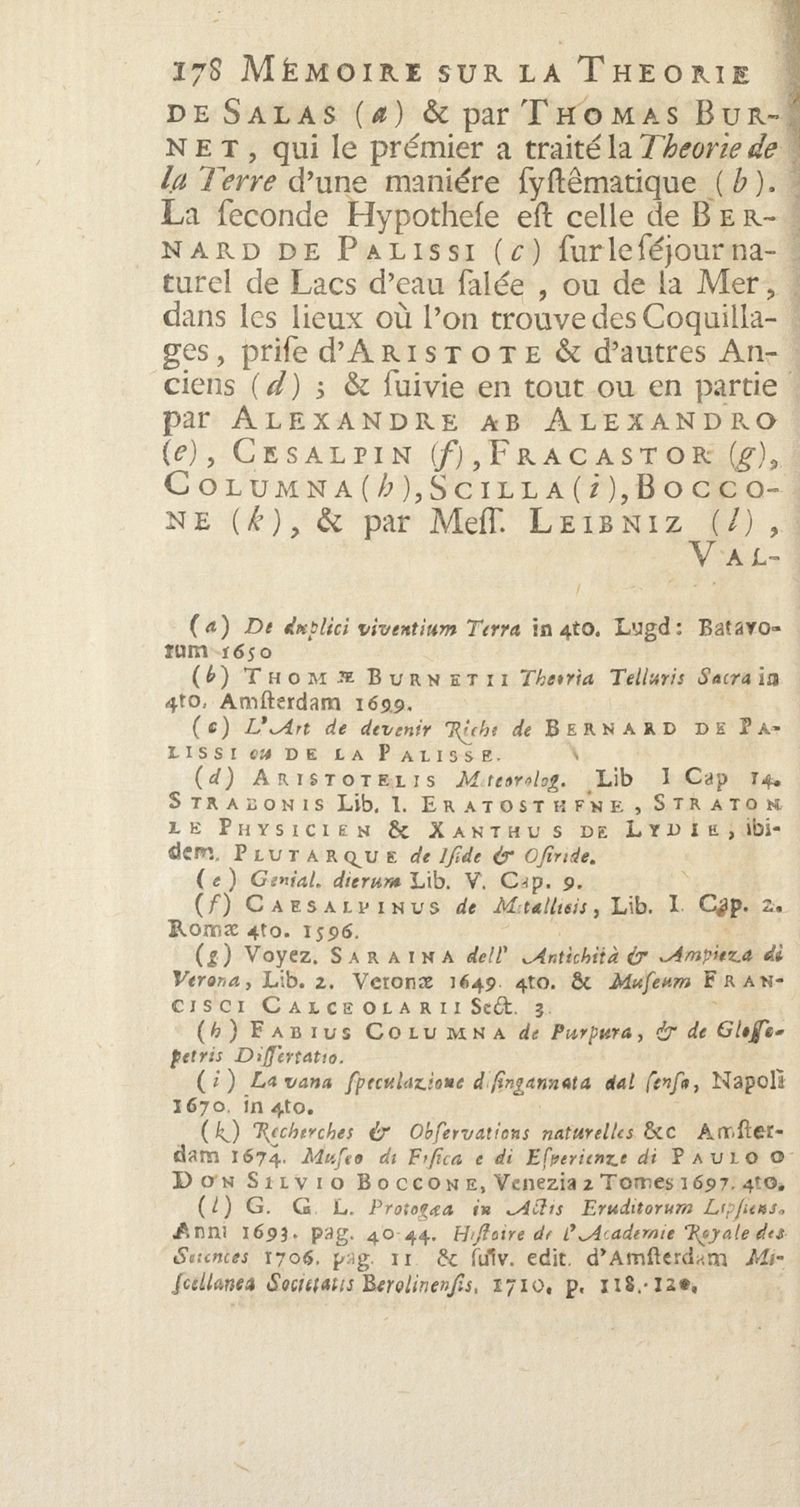 178 MÉMOIRE SUR LA THEORIE
DE SALAS (a) & par THOMAS BUR-
NET, qui le prémier a traité la Theorie de
la Terre d'une maniére ſyſtêmatique (b).
La ſeconde Hypotheſe eſt celle de BER-
NARD DE PALISSI (c) ſur le ſéjour na-
turel de Lacs d'eau ſalée , ou de la Mer,
dans les lieux où l'on trouve des Coquilla-
ges, priſe d'ARISTOTE & d'autres An-
ciens (d) ; & ſuivie en tout ou en partie
par ALEXANDRE AB ALEXANDRO
(e), CESALPIN (f), FRACASTOR (g),
COLUMNA (h), SCILLA (i), BOCCO-
NE (k), & par Meſſ. LEIBNIZ (l) ,
VAL-
(a) De duplici viventium Terra in 4to. Lugd: Batavo-
rum 1650
(b) THOMÆ BURNETII Theoria Telluris Sacra in
4to, Amſterdam 1699.
(c) L'Art de devenir Riche de BERNARD DE PA-
LISSI ou DE LA PALISSE.
(d) ARISTOTELIS Meteorolog. Lib I Cap 14.
STRABONIS Lib. I. ERATOSTHENE, STRATON
LE PHYSICIEN & XANTHUS DE LYDIE, ibi-
dem. PLUTARQUE de Iſide & Oſiride.
(e) Genial. dierum Lib. V. Cap. 9.
(f) CAESALPINUS de Metallicis, Lib. I. Cap. 2.
Romæ 4to. 1596.
(g) Voyez. SARAINA dell' Antichità & Ampiezza di
Verona, Lib. 2. Veronæ 1649. 4to. & Muſeum FRAN-
CISCI CALCEOLARII Sect. 3.
(h) FABIUS COLUMNA de Purpura, & de Gloſſo-
petris Diſſertatio.
(i) La vana ſpeculazione diſingannata dal ſenſo, Napoli
1670. in 4to.
(k) Recherches & Obſervations naturelles &c Amſter-
dam 1674. Muſeo di Fiſica e di Eſperienze di PAULO O
DON SILVIO BOCCONE, Venezia 2 Tomes 1697. 4to.
(l) G. G. L. Protogæa in Actis Eruditorum Lipſiens.
Anni 1693. pag. 40-44. Hiſtoire de l'Academie Royale des
Sciences 1706. pag. 11 & ſuiv. edit. d'Amſterdam Mi-
ſcellanea Societatis Berolinenſis, 1710, p. 118.-120,